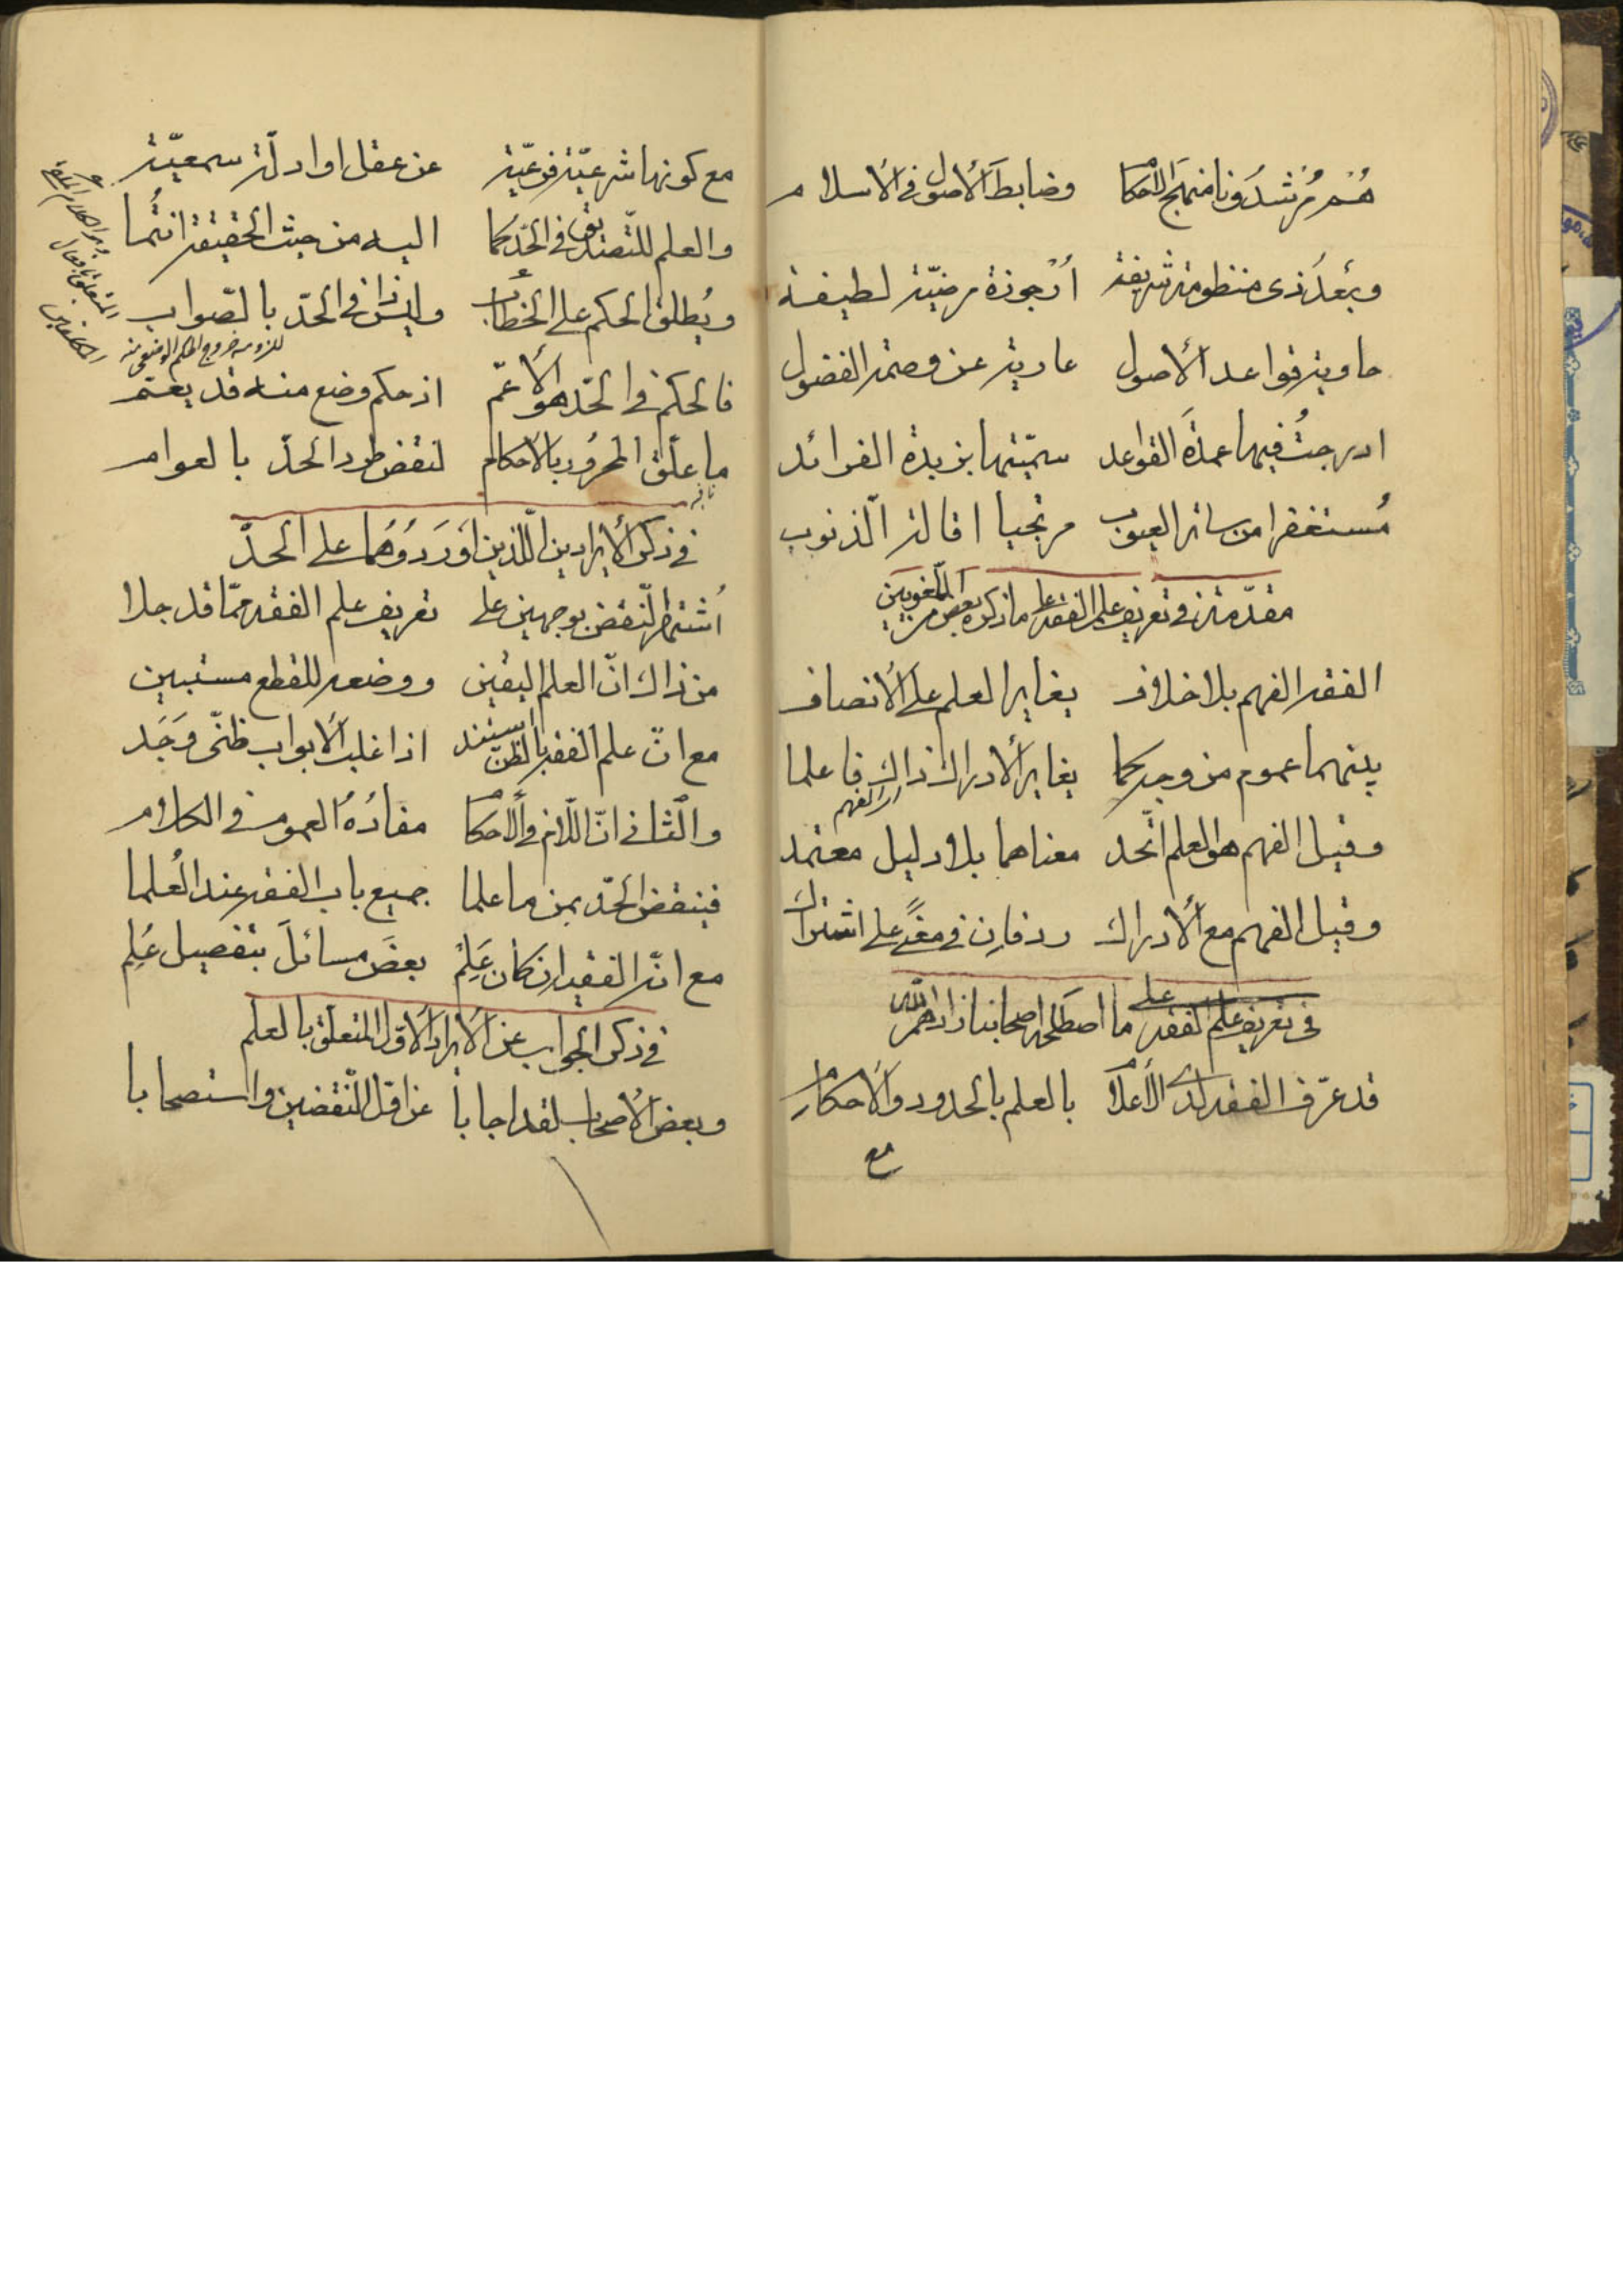 هُم مُرشدُونا منهج الأحكام وضابط الأصول في الأسلام
وبعدُ ذى منظومة شريفة أرجوزة مرضيّة لطيفة
حاوية قواعد الأصول عارية عن وصمة الفضول
ادرجتُ فيها عمدة القواعد سمّيتها بزبدة الفوائد
مُستغفرا من ساتر العيوب مرتجيا اقالة الذّنوب
مقدّمة في تعريف علم الفقه على ما ذكره بعض من اللّغويين
الفقه الفهم بلا خلاف يغاير العلم على الأنصاف
بينهما عموم من وجه كما يغاير الأدراك ذاك فاعلما
اى الفهم
وقيل الفهم هو العلم اتّحد معناهما بلا دليل معتمد
وقيل الفهم مع الأدراك ردفان في معنًى على اشتراك
في تعريف علم الفقه على ما اصطلحه اصحابنا
قد عرّف الفقه لدى الأعلام بالعلم بالحدود والأحكام
مع
مع كونها شرعيّة فرعيّة عن عقل او ادلّة سمعيّة
والعلم للتّصديق في الحدّ كما اليه من حيث الحقيقة انتُما
ويُطلق الحكم على الخطاب وليس ذا في الحدّ بالصّواب
للزومه خروج الحكم الوضعى منه
فالحكم في الحدّ هو الأعمّ اذ حكم وضع منه قد يعتم
ما علّق المجرُور بالأحكام لنقض طرد الحدّ بالعوام
نافيه
في ذكر الأيرادين اللّذين اَورَدوُهما على الحدّ
اُشتهر النّقض بوجهين على تعريف علم الفقه ممّا قد جلا
من ذاك انّ العلم اليقين ووضعه للقطع مستبين
مع انّ علم الفقه بالظنّ استند اذ اغلب الأبواب ظنّى وَجَد
والثّانى انّ اللّام في الأحكام مفادُهُ العموم في الكلام
فينقض الحدّ بمن ما علما جميع باب الفقه عند العُلما
مع انّه الفقيه ان كان عَلِم بعضَ مسائلَ بتفصيل عُلِم
في ذكر الجواب عن الأيراد الأوّل المتعلّق بالعلم
وبعض الأصحاب لقد اجابا عن اوّل النّقضين واستصحابا